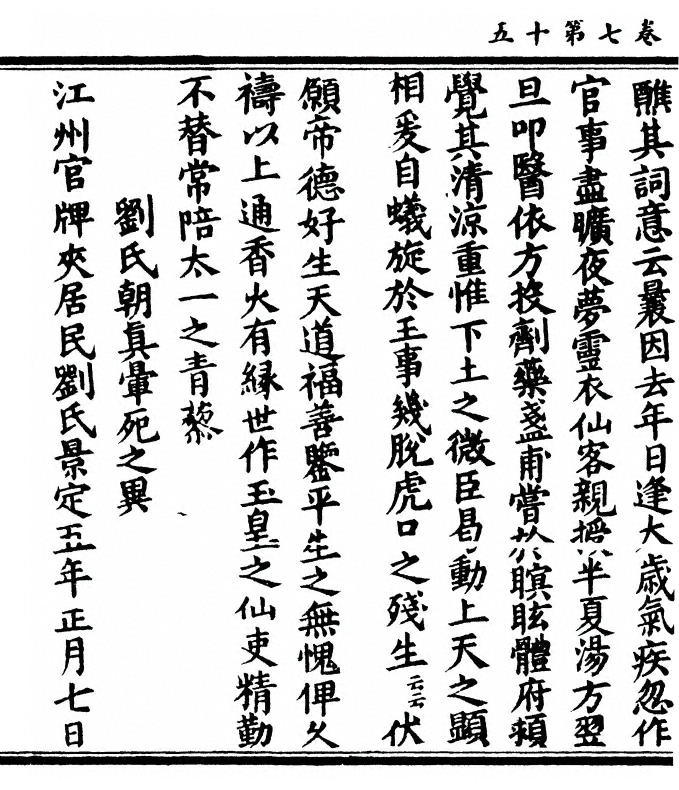 卷七第十五
醮其詞意云曩因去年日逢大歲氣疾忽作
官事盡曠夜夢靈衣仙客親授半夏湯方翌
旦叩醫依方投劑藥盞甫嘗於瞑眩體府頓
覺其清涼重惟下土之微臣曷動上天之顯
相爰自蟻旋於王事幾脫虎口之殘生云云伏
願帝德好生天道福善鑒平生之無愧俾久
禱以上通香火有緣世作玉皇之仙吏精勤
不替常陪太一之青藜
劉氏朝真暈死之異
江州官牌夾居民劉氏景定五年正月七日